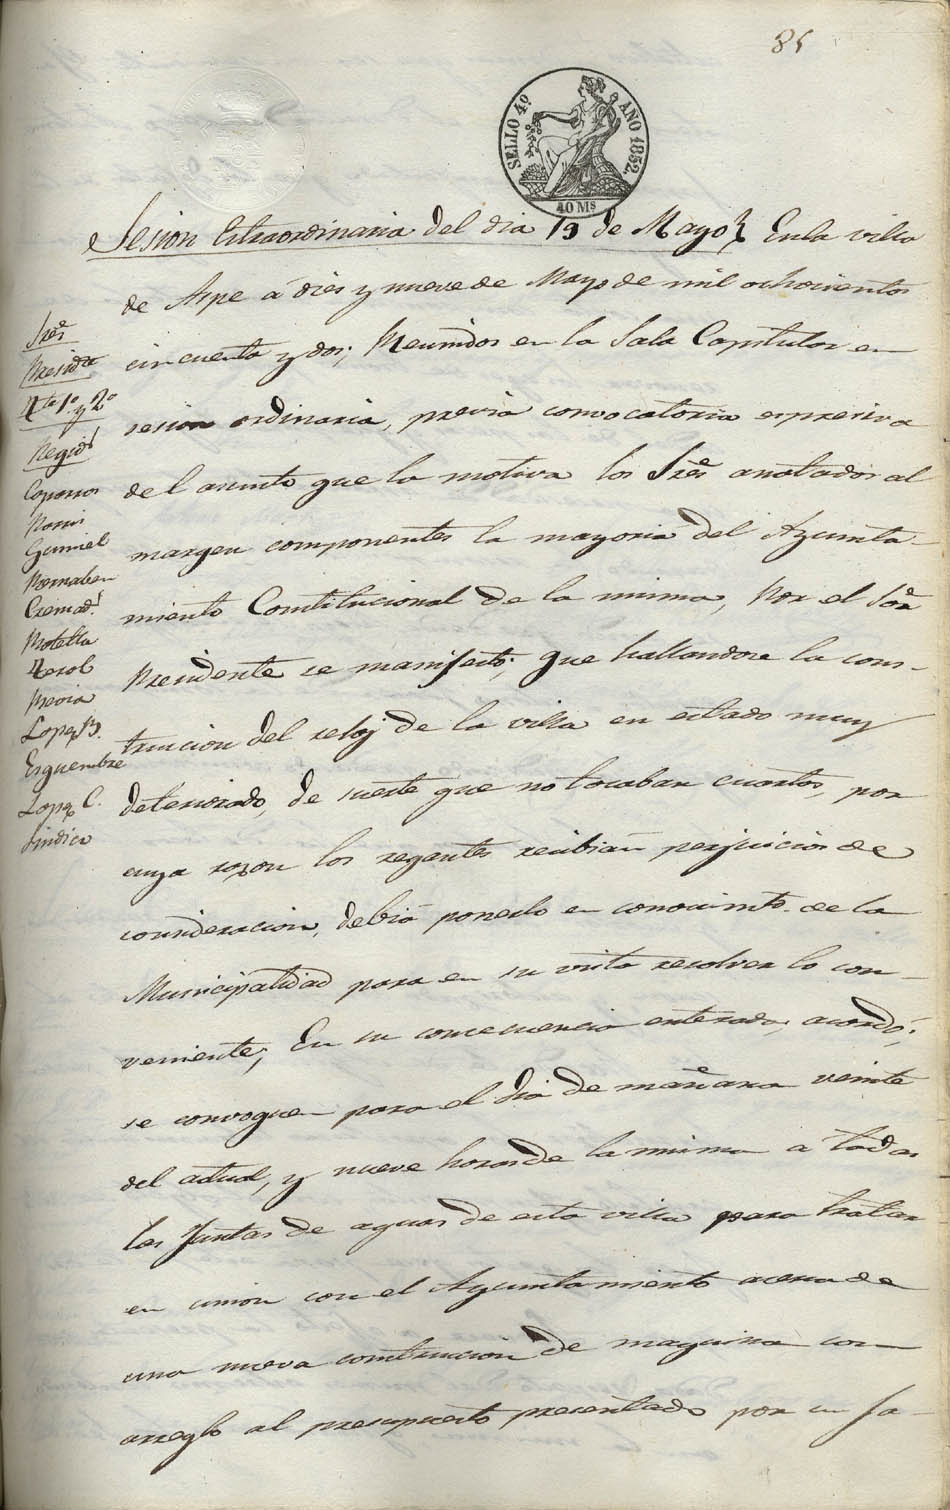 85
SELLO 4º AÑO 1852.
40 Ms
Sesion Extraordinaria del dia 19 de Mayo} En la villa
de Aspe á diez y nueve de Mayo de mil ochocientos
cincuenta y dos; Reunidos en la Sala Capitular en
sesion ordinaria, previa convocatoria expresiva
del asunto que la motiva los Sres. anotados al
margen componentes la mayoria del Ayunta-
miento Constitucional de la misma, Por el Sor.
Presidente se manifestó; que hallandose la cons-
truccion del reloj de la villa en estado muy
deteriorado, de suerte que no tocaban cuartos, por
cuya razon los regantes recibian perjuicios de
consideracion, debia ponerlo en conocimto. de la
Municipalidad para en su vista resolver lo con-
veniente; En su consecuencia enterados, acordó;
se convoquen para el dia de mañana veinte
del actual, y nueve horas de la misma a todas
las Juntas de aguas de esta villa para tratar
en union con el Ayuntamiento acerca de
una nueva construccion de maquina con
arreglo al presupuesto presentado por un fa-
Sres.
Presidte
Ttes 1º y 2º
Regids
Caparros
Gumiel
Bernabeu
Cremads
Botella
Terol
Lopez B.
Esguembre
Lopez C.
Sindico